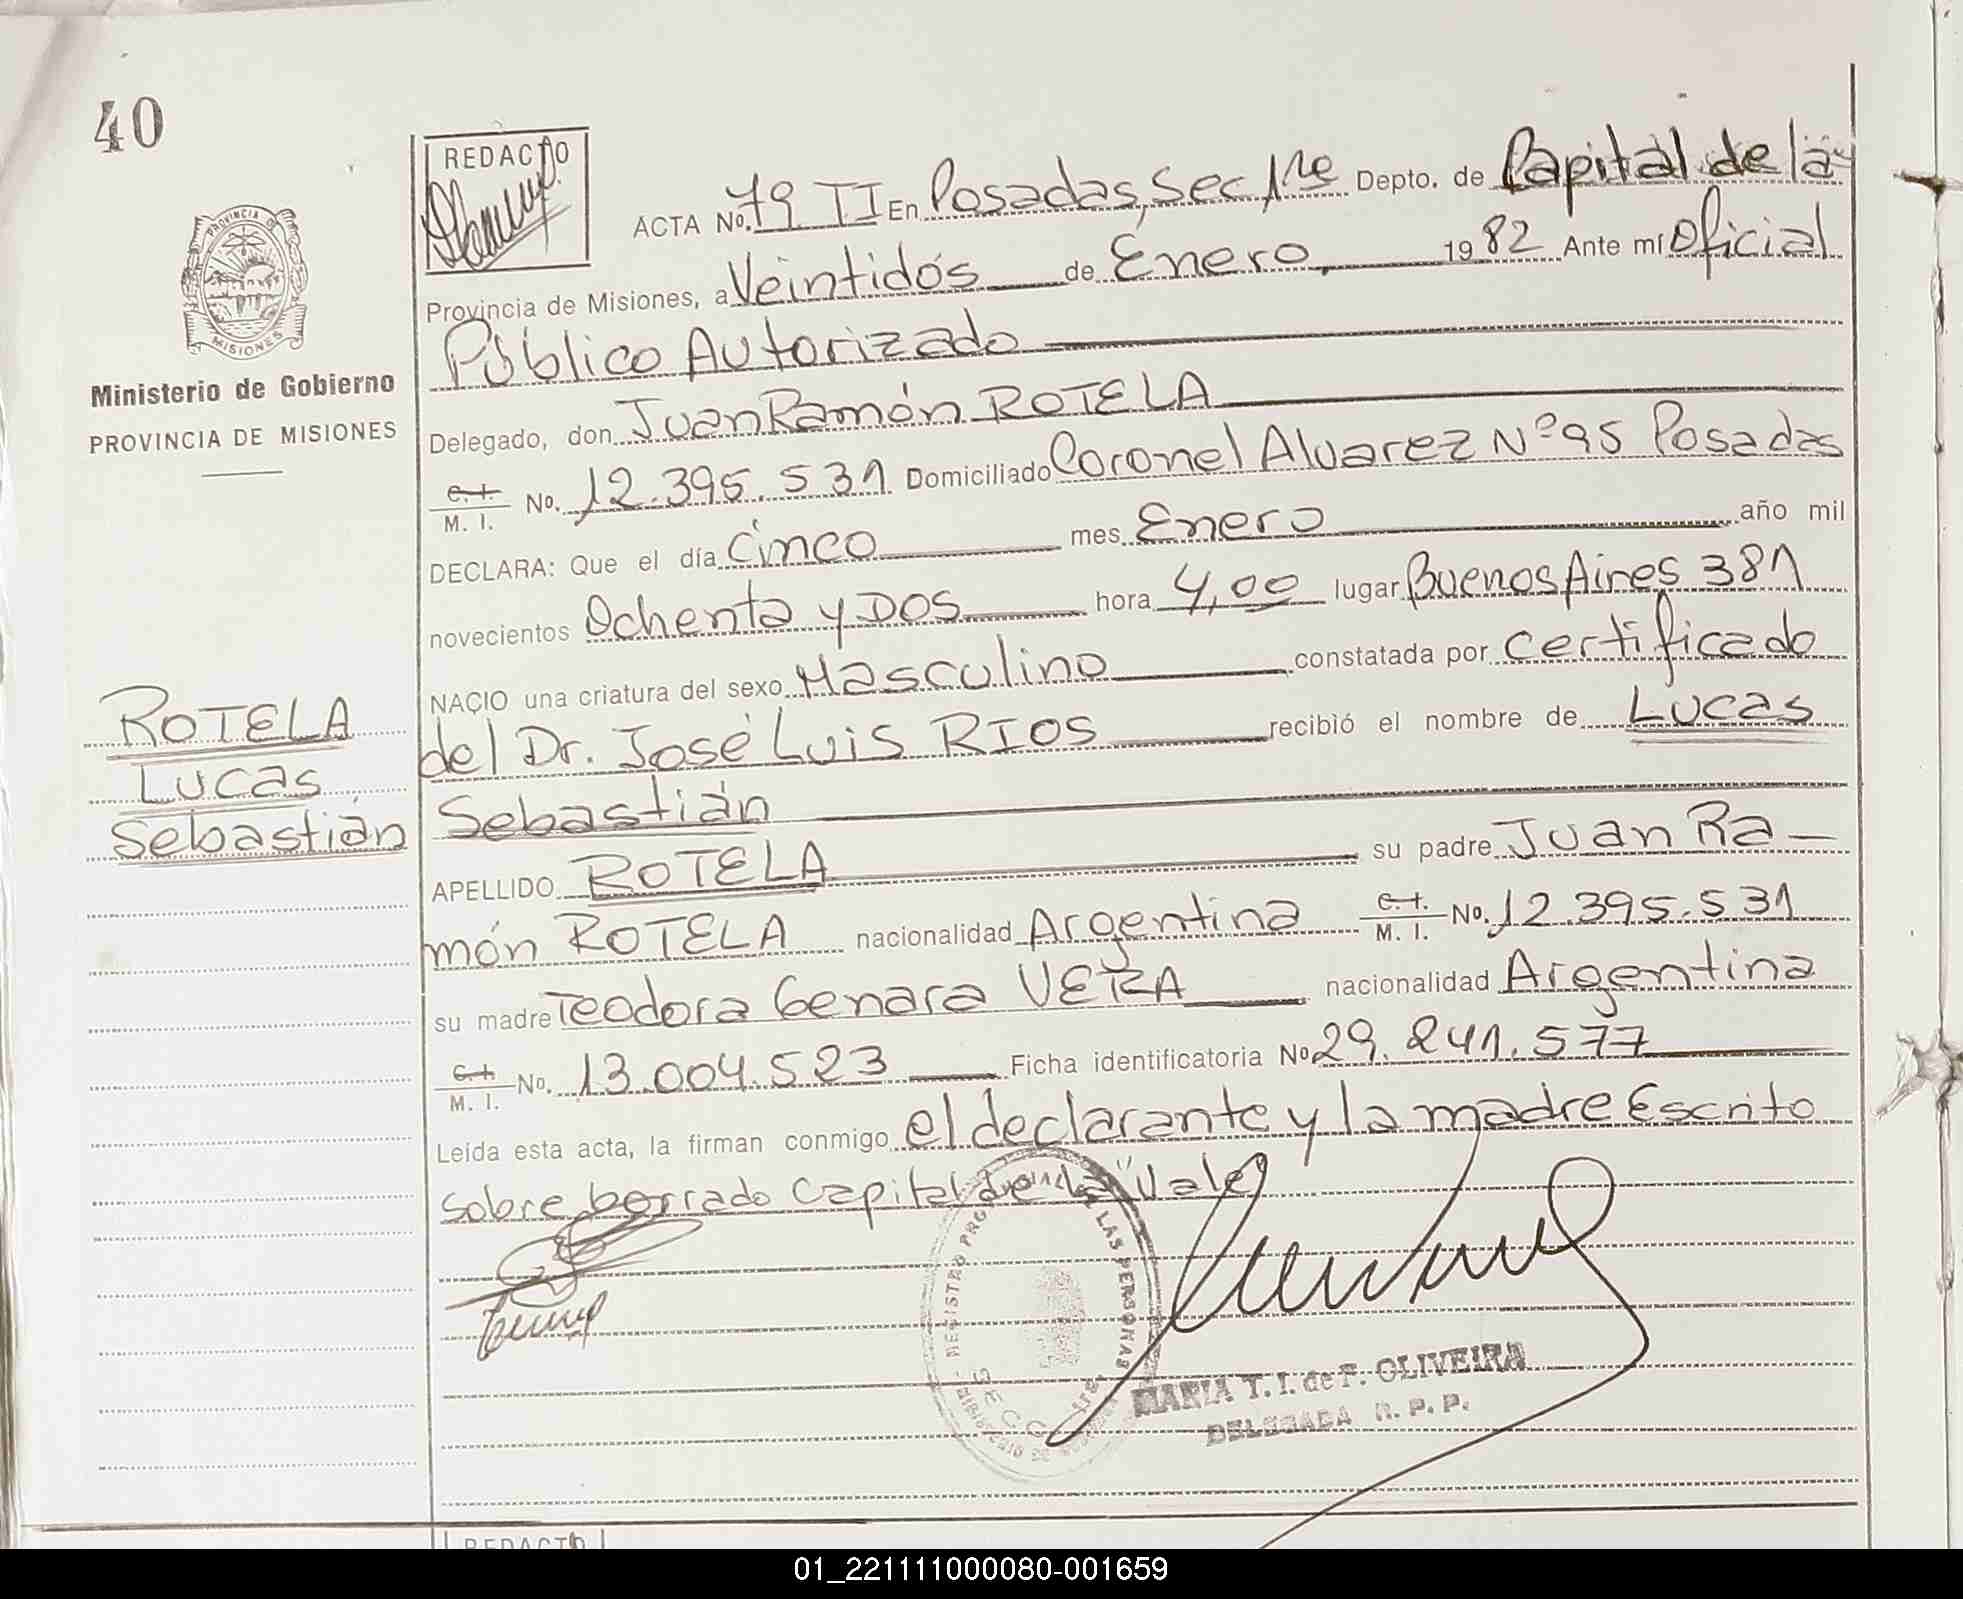 40
REDACTO
ACTA No. 79 II En Posadas, Sec 1re Depto. de Capital de la
Provincia de Misiones, a Veintidós de Enero, 1982 Ante mí Oficial
Público Autorizado
Delegado, don Juan Ramón ROTELA
C.I. M. I. No. 12.395.531 Domiciliado Coronel Alvarez Nº 95 Posadas
DECLARA: Que el día Cinco mes Enero año mil
novecientos Ochenta y DOS hora 4,00 lugar Buenos Aires 381
NAÇIO una criatura del sexo Masculino constatada por certificado
del Dr. José Luis RIOS recibiò el nombre de Lucas
Sebastián
APELLIDO ROTELA su padre Juan Ra-
món ROTELA nacionalidad Argentina C.I. M. I. No. 12.395.531
su madre Teodora Genara VERA nacionalidad Argentina
C.I. M. I. No. 13.004.523 Ficha identificatoria No 29.241.577
Leída esta acta, la firman conmigo el declarante y la madre Escrito
sobre borrado Capital de la "Vale"
PROVINCIA DE
MISIONES
Ministerio de Gobierno
PROVINCIA DE MISIONES
ROTELA
Lucas
Sebastián
REGISTRO PROVINCIAL DE LAS PERSONAS
SECC
MARIA T. I. de F. OLIVEIRA
DELEGADA R. P. P.
REDACTO
01_221111000080-001659